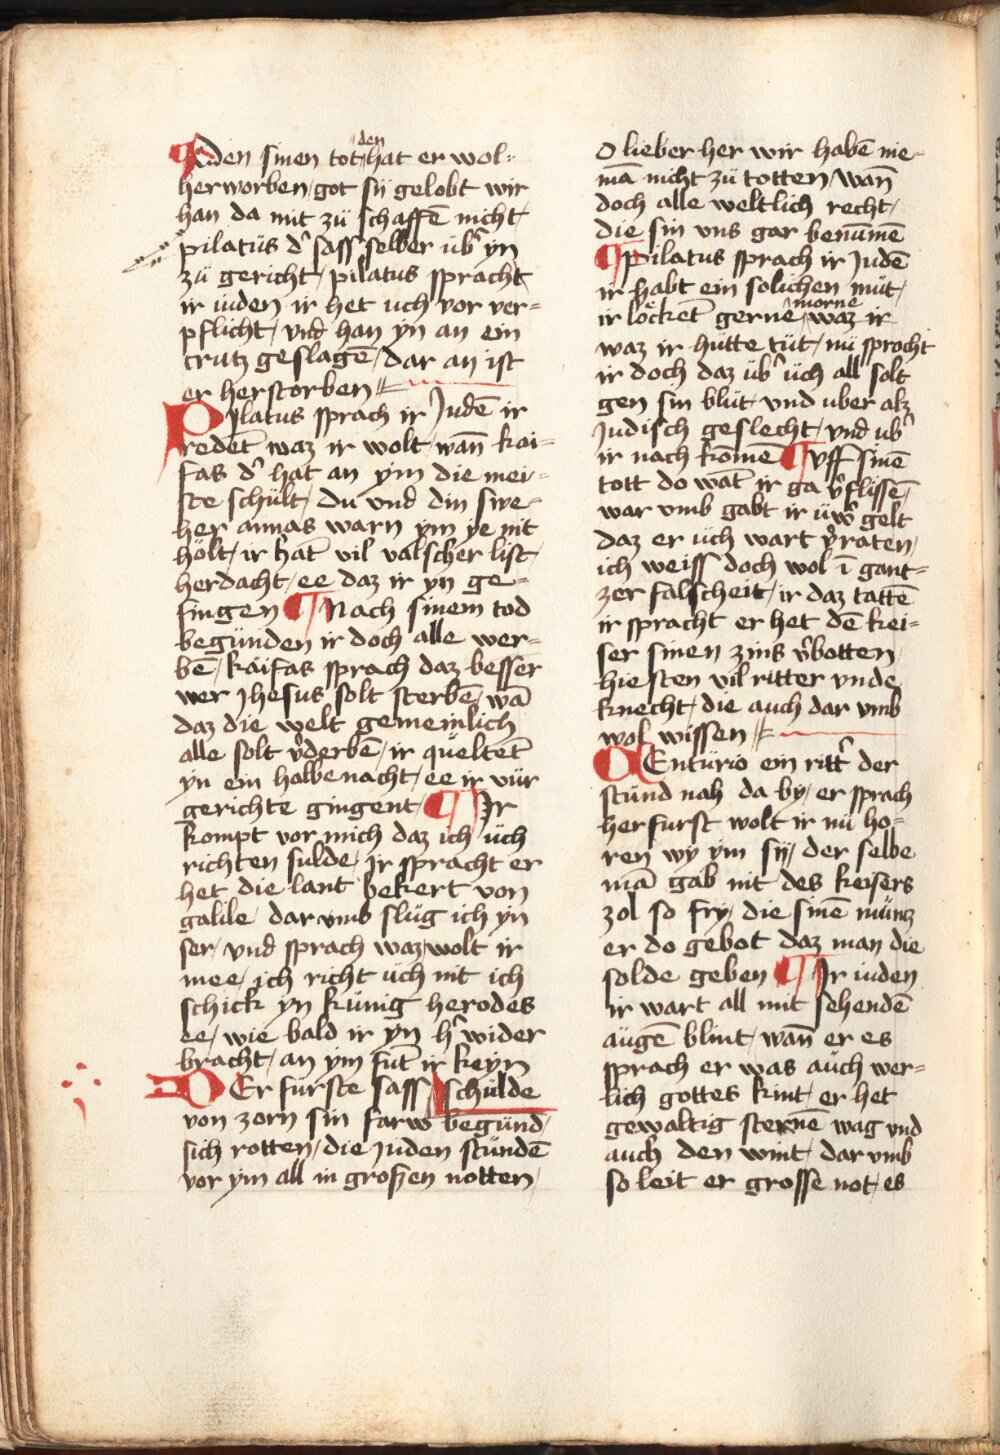 den sinen tot den hat er wol-
herworben / got sy gelobt wir
han da mit zü schaffē nicht /
pilatüs d' sass selber üb' yn
zü gericht / pilatus spracht
ir iuden ir het uch vor ver=
pflicht / vnd han yn an ein
crutz geslagē / dar an ist
er herstorben
Pilatus sprach ir Judē ir
redēt waz ir wolt / wañ kai=
fas d' hat an ym die mei-
ste schült / du vnd din swe-
her annas warn ym ye nit
hölt / ir hat vil valscher list
herdacht / ee daz ir yn ge-
fingen ¶ Nach sinem tod
begünden ir doch alle wer-
bē / kaifas sprach daz besser
wer Jhesus solt sterbē / wā
daz die welt gemeinlich
alle solt v'derbē / ir queltēt
yn ein halbe nacht / ee ir vür
gerichte gingent / ¶ Jr
kompt vor mich daz ich üch
richten sulde / Jr spracht er
het die lant bekert von
galile / dar vmb slüg ich yn
ser / vnd sprach waz wolt ir
mee / ich richt üch nit ich
schick yn künig herodes
ee / wie bald ir yn h' wider
bracht / an ym fūt ir keyn
schülde
DEr fürste sass
von zorn sin farw begünd /
sich rotten / die Juden stündē
vor ym all in großen notten /
O lieber her wir habē nie-
mā nicht zü totten / wañ
doch alle weltlich recht /
die sin vns gar benūmē
¶ Pilatus sprach ir Judē
ir habt ein solichen müt /
ir löckēt gernē morne waz ir
waz ir hütte tüt / nü sprocht
ir doch daz üb' üch all solt
gen sin blüt / vnd uber alz
Judisch geslecht / vnd ub'
ir nach komē ¶ vff sinē
tott do wāt ir ga v'flissē /
war vmb gabt ir üw' gelt
daz er üch wart v'raten /
ich weiss doch wol ī gant=
zer falscheit / ir daz tattē
ir spracht er het dē kei-
ser sinen zins v'botten
hie sten vil ritter vnde
knecht / die auch dar vmb
wol wissen
CEntürio ein ritt' der
stünd nah da by / er sprach
her furst wolt ir nü ho-
ren wy ym sy / der selbe
mā gab nit des keisers
zol so fry / die sinē müntz
er do gebot daz man die
solde geben ¶ Jr iuden
ir wart all mit sehendē
augē blint / wañ er es
sprach er was auch wer-
lich gottes kint / er het
gewaltig sternē wag vnd
auch den wint / dar vmb
so leit er grosse not / es